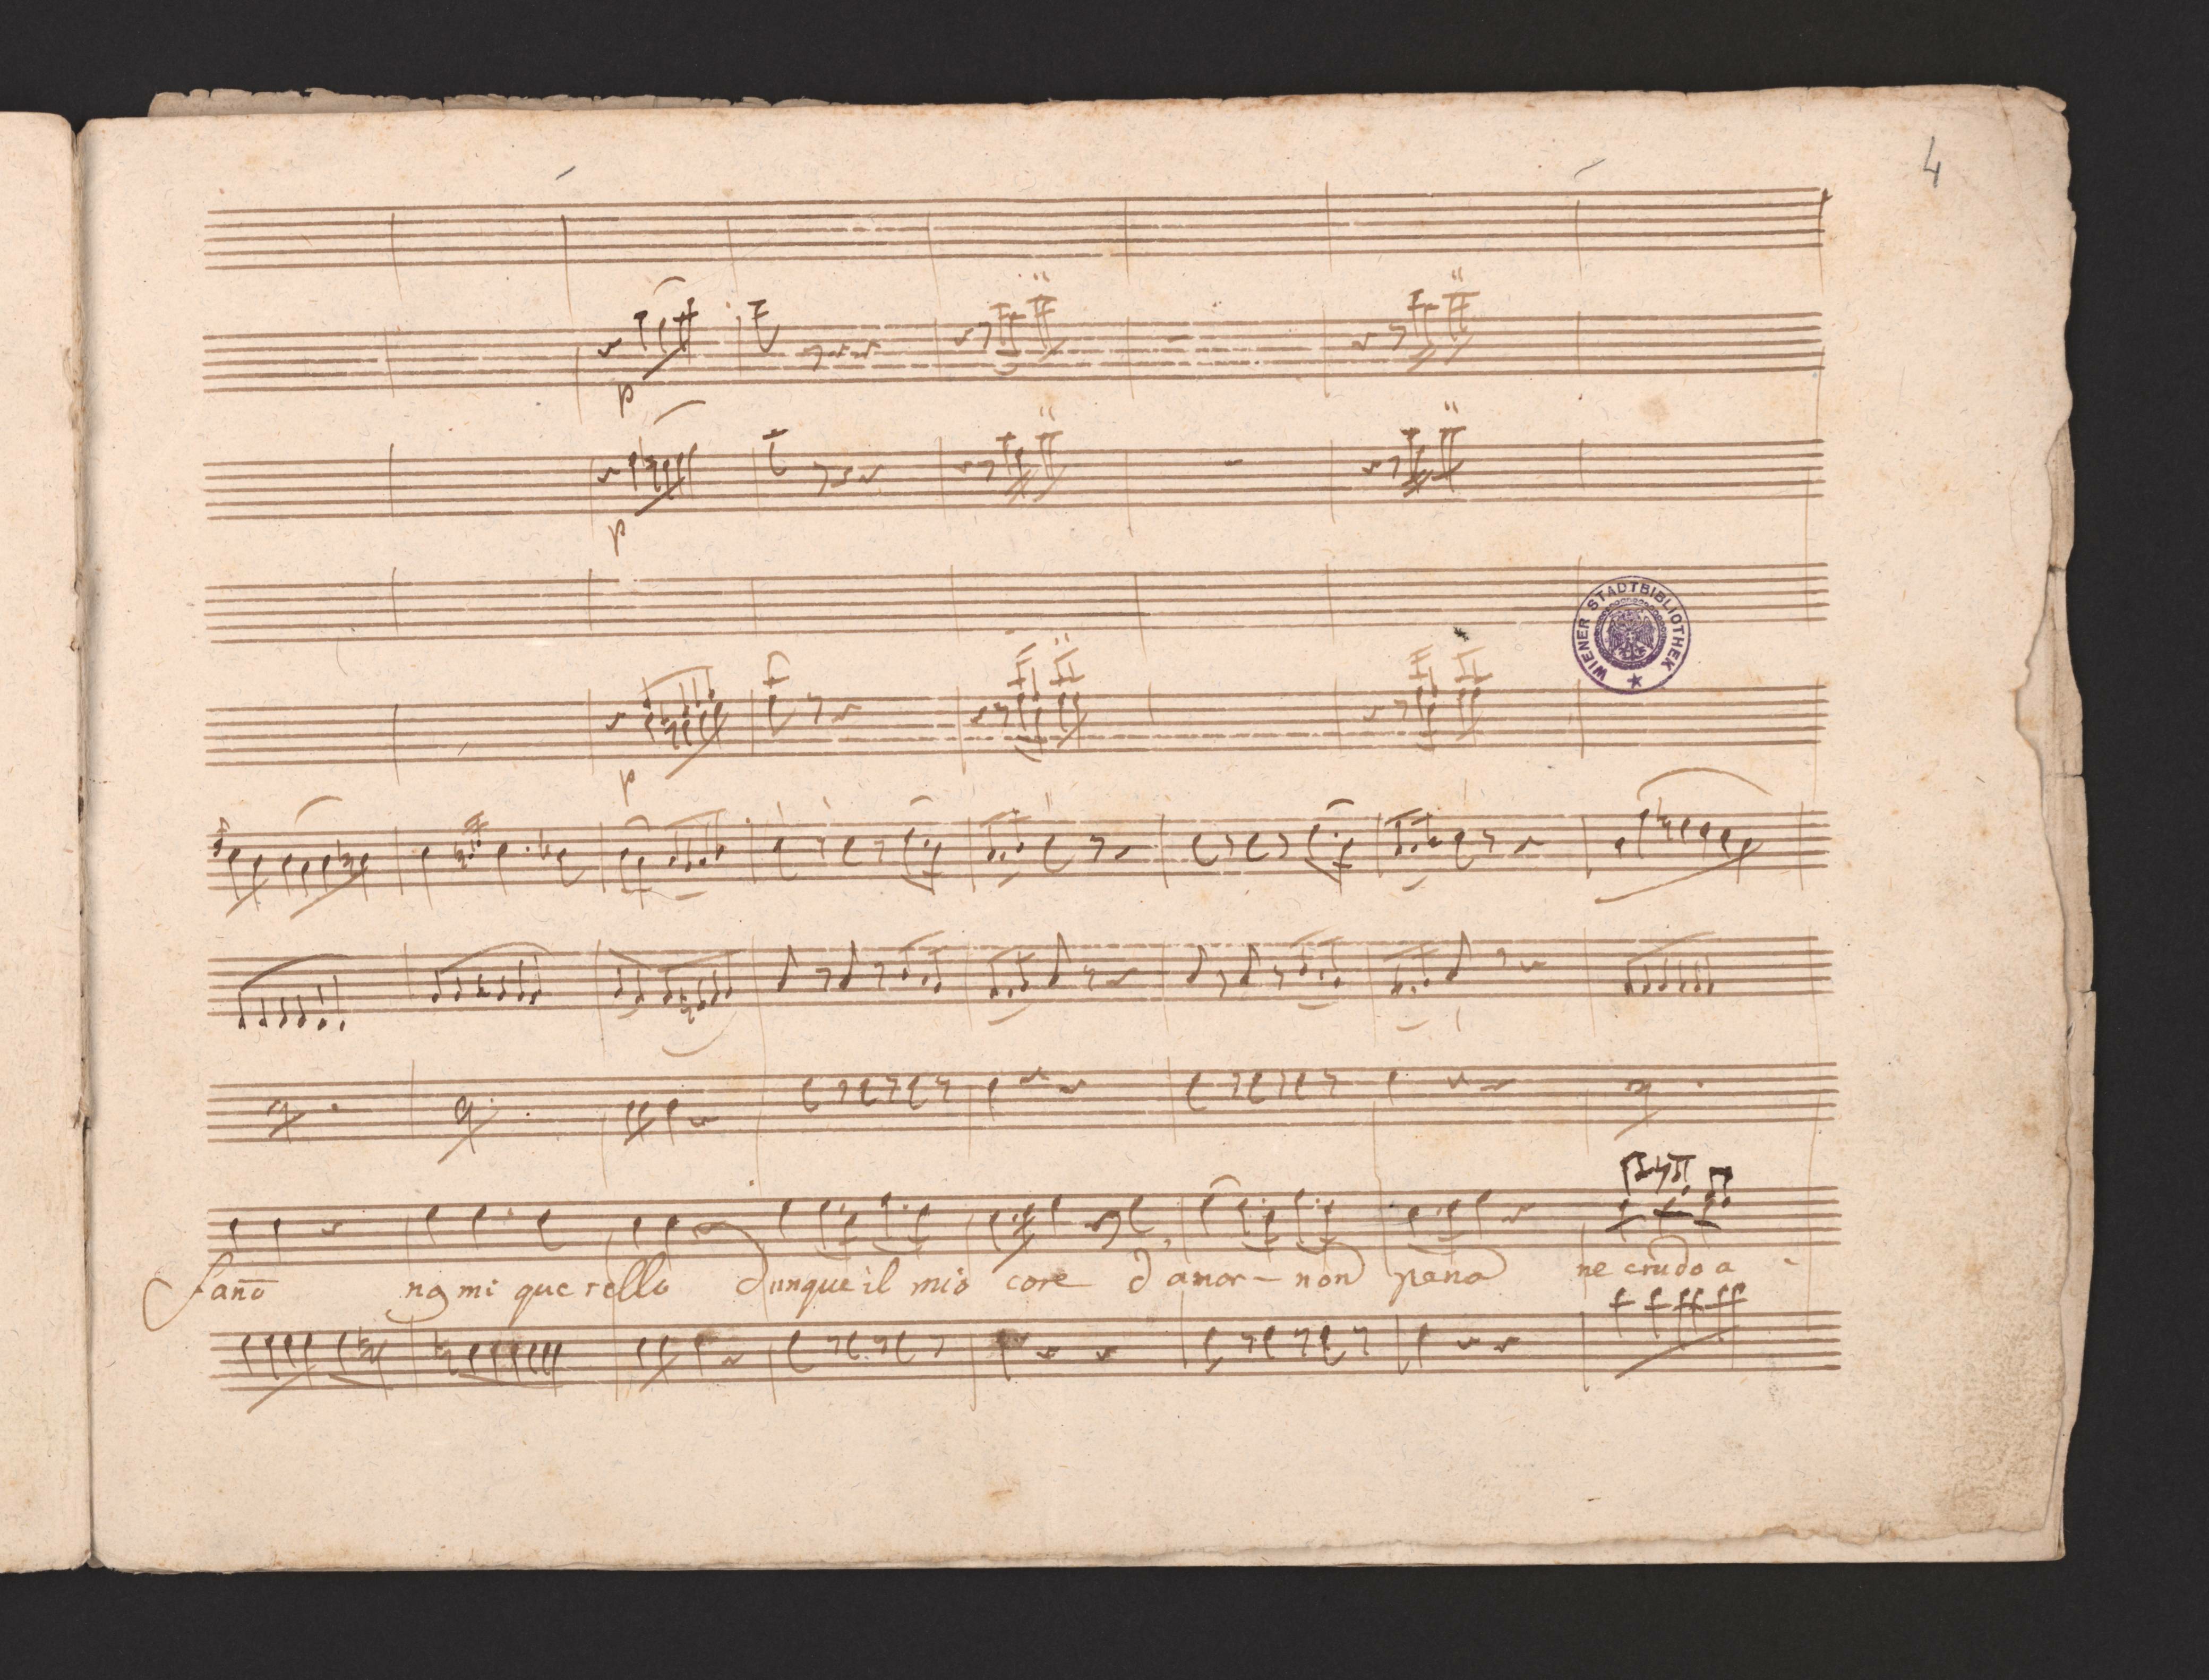 4
p
p
WIENER STADTBIBLIOTHEK
p
fano na mi que rello dunque il mio core d amor - non pena ne crudo a -